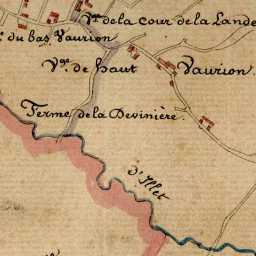 V.ge de la Cour de la Lande
V.ge du bas Vaurion
V.ge de haut Vaurion
Ferme de la Devinière
d'Illet